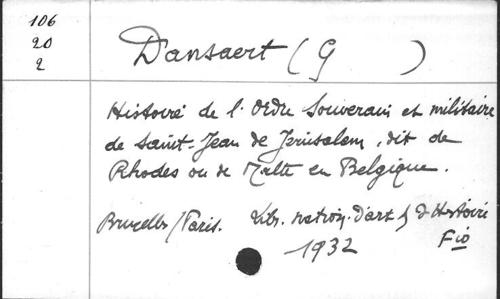 106
20
2
Dansaert (G )
Histoire de l'Ordre Souverain et militaire
de Saint-Jean de Jerusalem, dit de
Rhodes ou de Malte en Belgique.
Bruxelles/Paris. Libr. nation. d'art & d'Histoire
1932 Fio